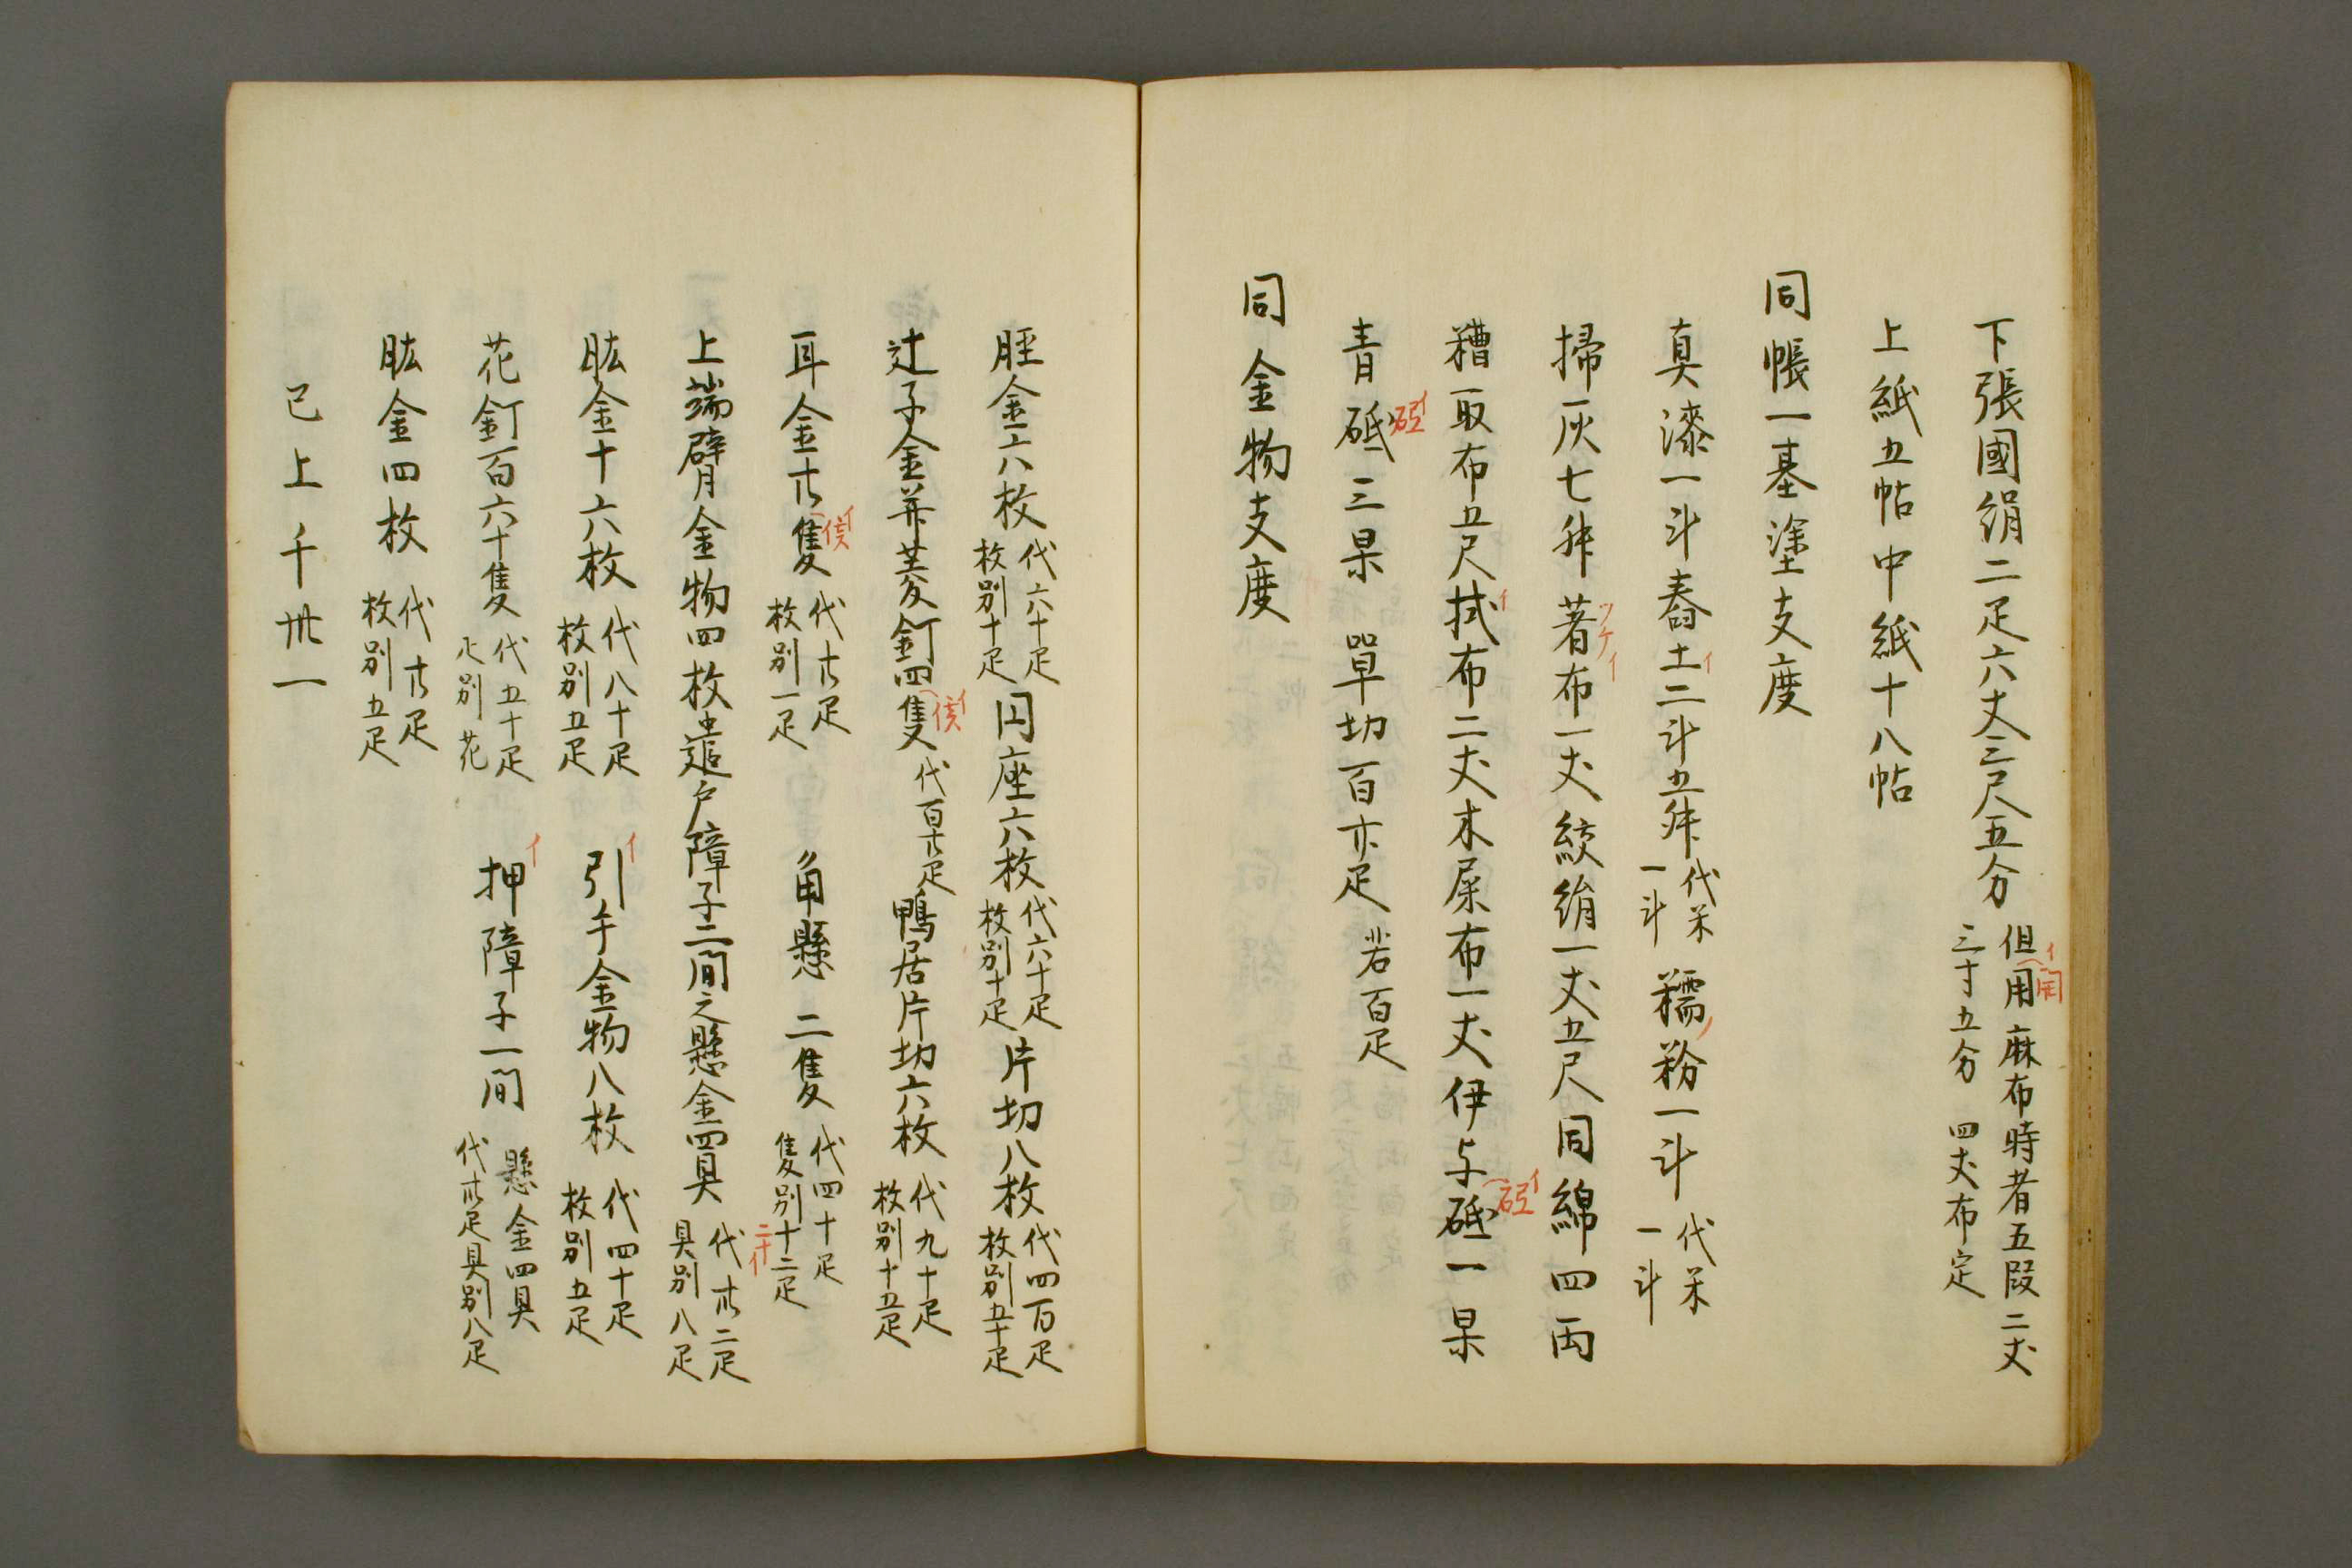 下張國絹二疋六丈三尺五分 但用麻布時者五段二丈 三寸五分 四丈布定
イ 開
上紙五帖中紙十八帖
同帳一基塗支度
真漆一斗舂土二斗五舛 代米一斗 糯粉一斗 代米一斗
イ
掃灰七舛著布一丈絞絹一丈五尺同綿四両
ツケイ
糟取布五尺拭布二丈木屎布一丈伊与砥一果
イ
イ 硎
青砥三果 單切百卅疋 若百疋
イ 硎
同金物支度
脛金六枚 代六十疋 枚別十疋 円座六枚 代六十疋 枚別十疋 片切八枚 代四百疋 枚別五十疋
辻子金并菱釘四隻 代百廿疋 鴨居片切六枚 代九十疋 枚別十五疋
イ 俣
耳金廿隻 代廿疋 枚別一疋 角懸二隻 代四十疋 隻別十二疋
イ 俣
二十イ
上端臂金物四枚遣戸障子二間之懸金四具 代卅二疋 具別八疋
肱金十六枚 代八十疋 枚別五疋 引手金物八枚 代四十疋 枚別五疋
イ
花釘百六十隻 代五十疋 疋別花 押障子一間 懸金四具 代卅疋具別八疋
イ
肱金四枚 代廿疋 枚別五疋
已上千卅一